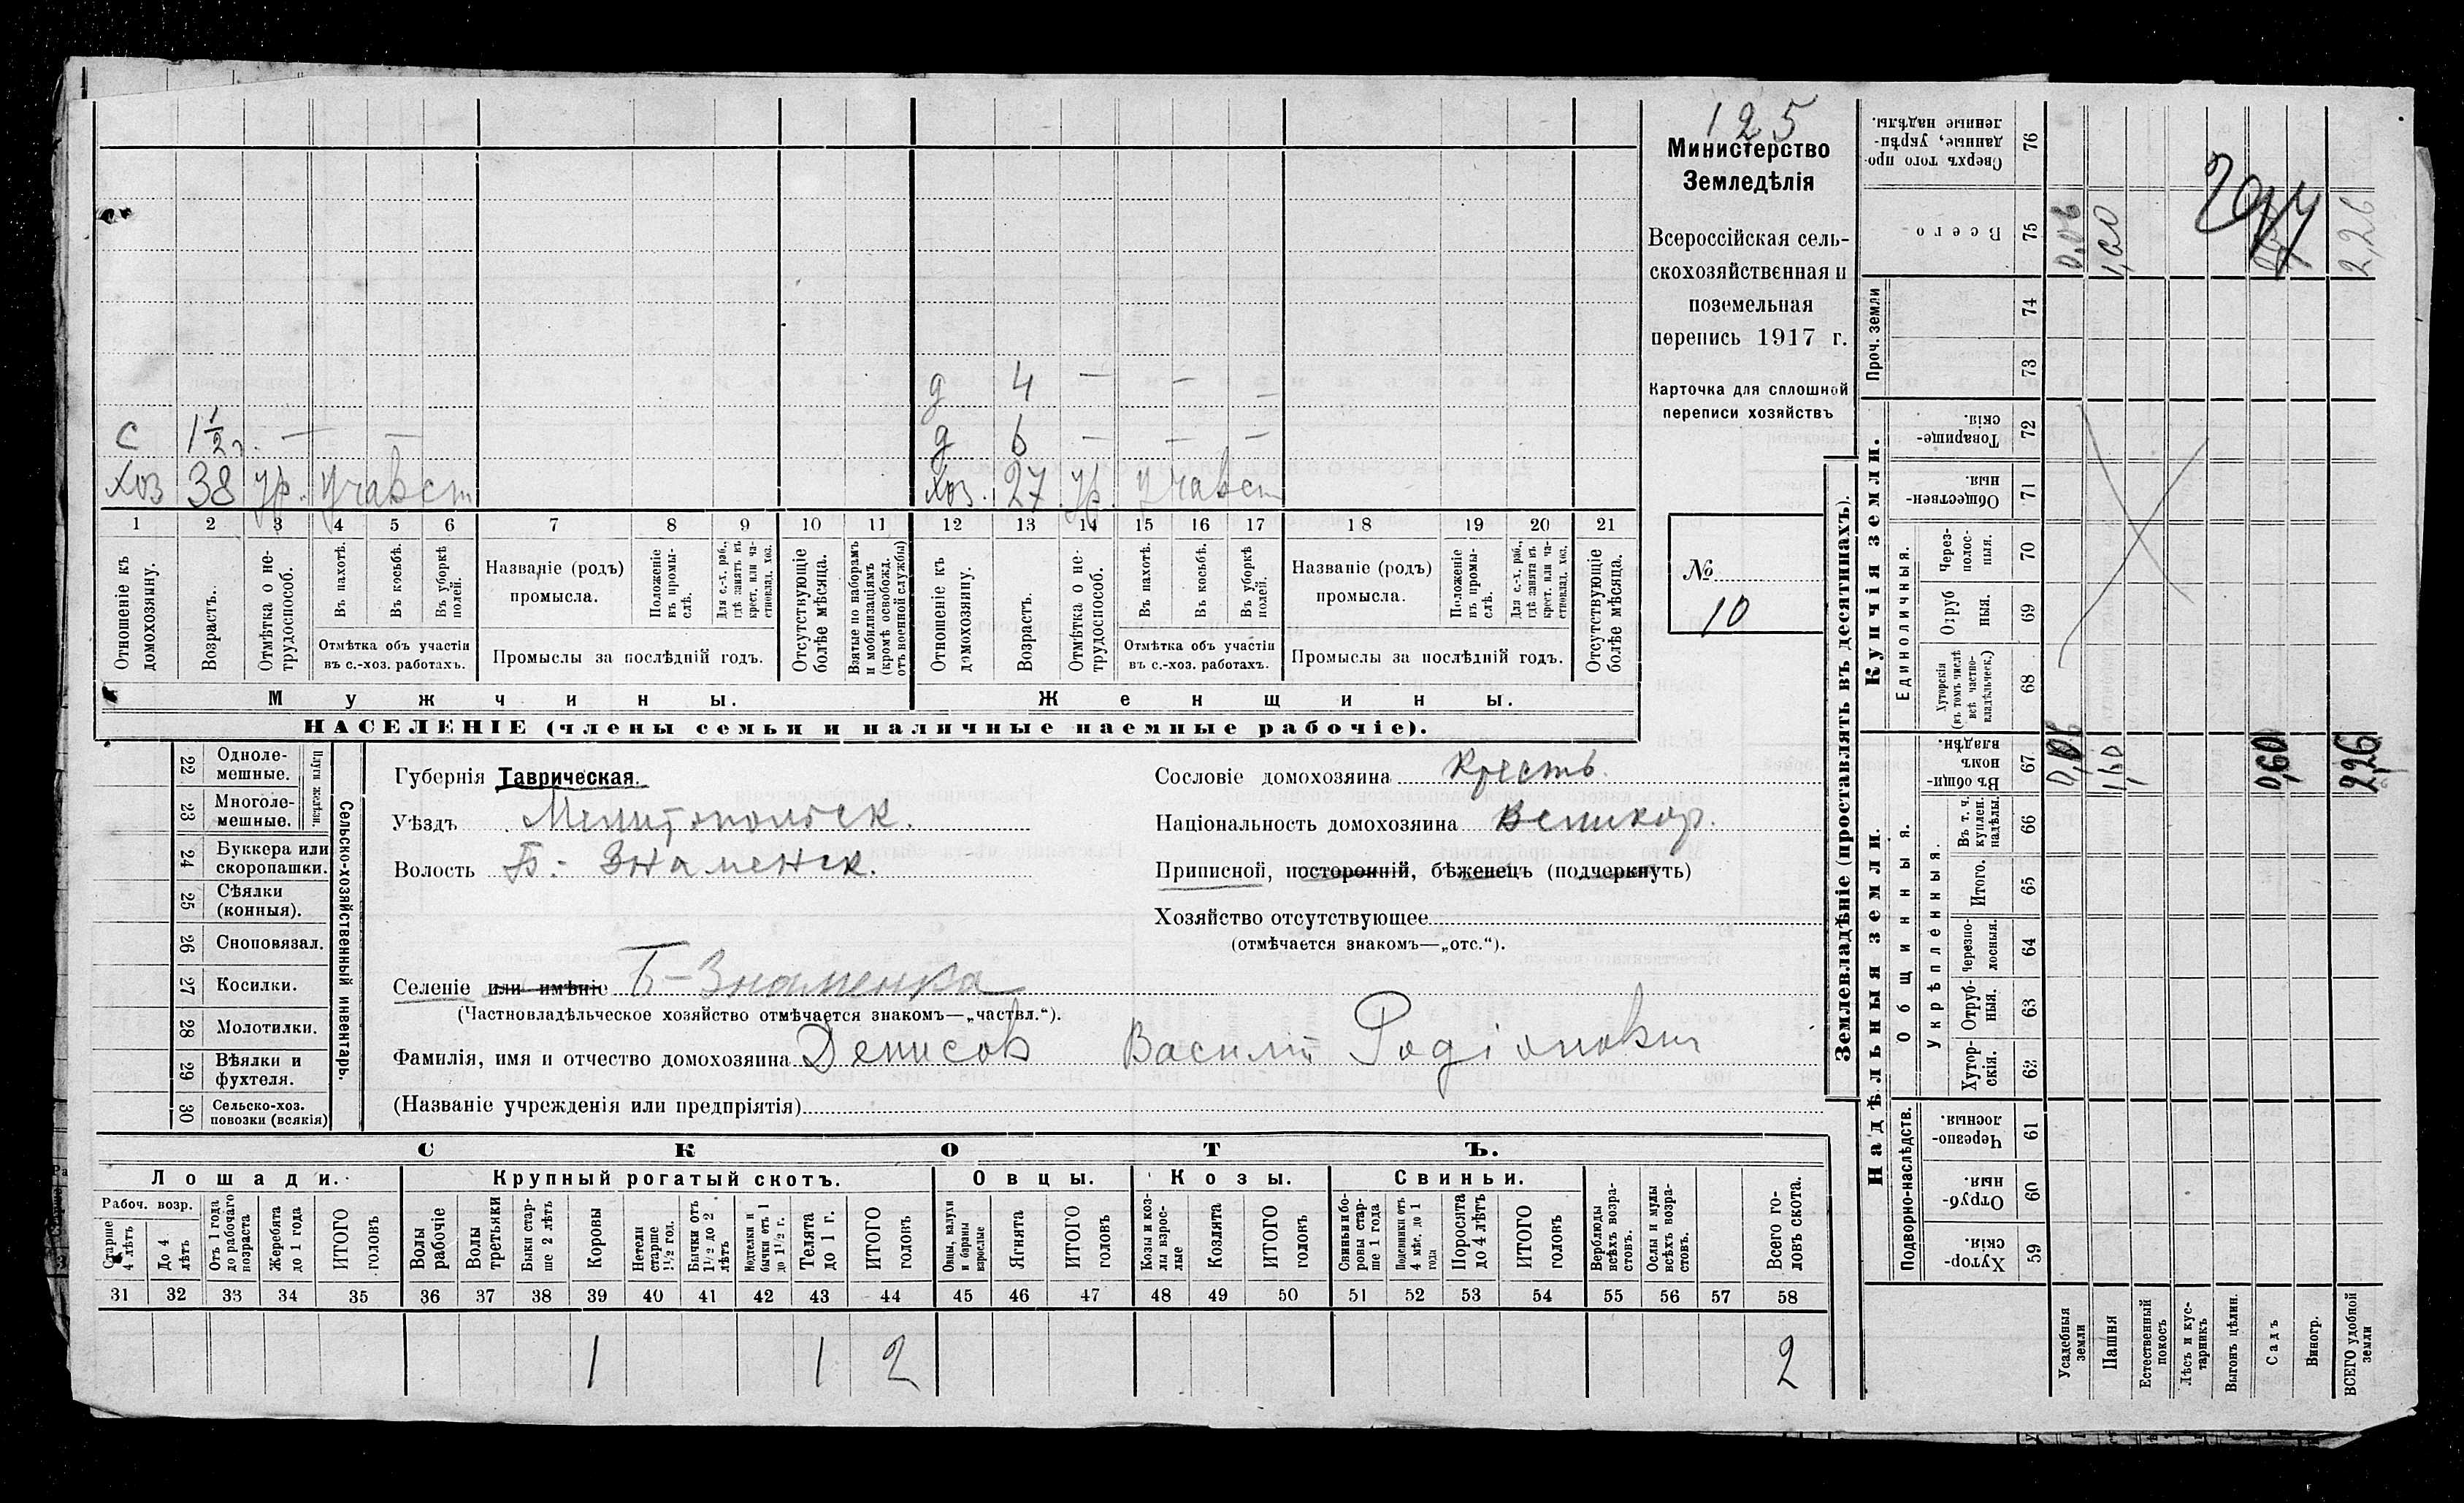 125
Министерство
Земледѣлія
Всероссійская сель-
скохозяйственная и
поземельная
перепись 1917 г.
Карточка для сплошной
переписи хозяйствъ
№
10
д 4 — — —
с 1½ г. — —
д 6 — — —
хоз 38 гр. участ
хоз. 27 гр. участ
1 2 3 4 5 6 7 8 9 10 11 12 13 14 15 16 17 18 19 20 21
Отношеніе къ домохозяину.
Возрастъ.
Отмѣтка о не-трудоспособ.
Въ пахотѣ.
Въ косьбѣ.
Въ уборкѣ полей.
Отмѣтка объ участіи
въ с.-хоз. работахъ.
Названіе (родъ)
промысла.
Положеніе въ промы-слѣ.
Для с.-х. раб., гдѣ занятъ въ крест. или ча-стновлад. хоз.
Промыслы за послѣдній годъ.
Отсутствующіе болѣе мѣсяца.
Взятые по наборамъ и мобилизаціямъ (кромѣ освобожд. отъ военной службы)
Отношеніе къ домохозяину.
Возрастъ.
Отмѣтка о не-трудоспособ.
Въ пахотѣ.
Въ косьбѣ.
Въ уборкѣ полей.
Отмѣтка объ участіи
въ с.-хоз. работахъ.
Названіе (родъ)
промысла.
Положеніе въ промы-слѣ.
Для с.-х. раб., гдѣ занята въ крест. или ча-стновлад. хоз.
Промыслы за послѣдній годъ.
Отсутствующіе болѣе мѣсяца.
Мужчины.
Женщины.
НАСЕЛЕНІЕ (члены семьи и наличные наемные рабочіе).
22 Одноле-мешные.
23 Многоле-мешные.
Плуги желѣзн.
24 Буккера или скоропашки.
25 Сѣялки (конныя).
26 Сноповязал.
27 Косилки.
28 Молотилки.
29 Вѣялки и фухтеля.
30 Сельско-хоз. повозки (всякія)
Сельско-хозяйственный инвентарь.
Губернія Таврическая.
Уѣздъ Мелитопольск.
Волость Б. Знаменск.
Сословіе домохозяина Крестъ.
Національность домохозяина Великор.
Приписной, посторонній, бѣженецъ (подчеркнуть)
Хозяйство отсутствующее
(отмѣчается знакомъ—„отс.“).
Селеніе или имѣніе Б-Знаменка
(Частновладѣльческое хозяйство отмѣчается знакомъ—„частвл.“).
Фамилія, имя и отчество домохозяина Денисов Василій Родіонович
(Названіе учрежденія или предпріятія)
СКОТЪ.
Лошади.
Крупный рогатый скотъ.
Овцы.
Козы.
Свиньи.
Рабоч. возр.
Старше 4 лѣтъ
До 4 лѣтъ
Отъ 1 года до рабочаго возраста
Жеребята до 1 года
ИТОГО головъ
Волы рабочіе
Волы третьяки
Быки стар-ше 2 лѣтъ
Коровы
Нетели старше 1½ год.
Бычки отъ 1½ до 2 лѣтъ
Подтелки и бычки отъ 1 до 1½ г.
Телята до 1 г.
ИТОГО головъ
Овцы, валухи и бараны взрослые
Ягнята
ИТОГО головъ
Козы и коз-лы взрос-лые
Козлята
ИТОГО головъ
Свиньи и бо-ровы стар-ше 1 года
Подсвинки отъ 4 мѣс. до 1 года
Поросята до 4 лѣтъ
ИТОГО головъ
Верблюды всѣхъ возра-стовъ.
Ослы и мулы всѣхъ возра-стовъ.
Всего го-ловъ скота.
31 32 33 34 35 36 37 38 39 40 41 42 43 44 45 46 47 48 49 50 51 52 53 54 55 56 57 58
1 1 2 2
Землевладѣніе (проставлять въ десятинахъ).
Надѣльныя земли.
Купчія земли.
Проч. земли
Сверхъ того про-данные, укрѣп-ленные надѣлы. 76
Всего 75
74
73
Товарище-скія. 72
Обществен-ныя. 71
Единоличныя.
Через-полос-ныя. 70
Отруб ныя. 69
Хуторскія (въ томъ числѣ всѣ частно-владѣльческ.) 68
Общинныя.
Въ общи-номъ владѣн. 67
Укрѣпленныя.
Въ т. ч. куплен. надѣлы. 66
Итого. 65
Черезпо-лосныя. 64
Отруб-ныя. 63
Хутор-скія. 62
Подворно-наслѣдств.
Черезпо-лосныя 61
Отруб-ныя. 60
Хутор-скія. 59
Усадебныя земли
Пашня
Естественный покосъ
Лѣсъ и кус-тарникъ
Выгонъ цѣлин.
Садъ
Виногр.
ВСЕГО удобной земли
0,06 1,60 2,26
0,06 1,60 0,60 2,26